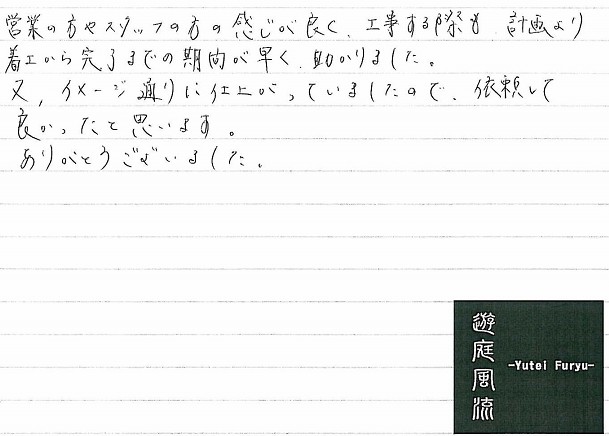 営業の方やスタッフの方の感じが良く、工事する際も 計画より
着工から完了までの期間が早く、助かりました。
又、イメージ通りに仕上がっていましたので、依頼して
良かったと思います。
ありがとうございました。
遊庭風流
-Yutei Furyu-